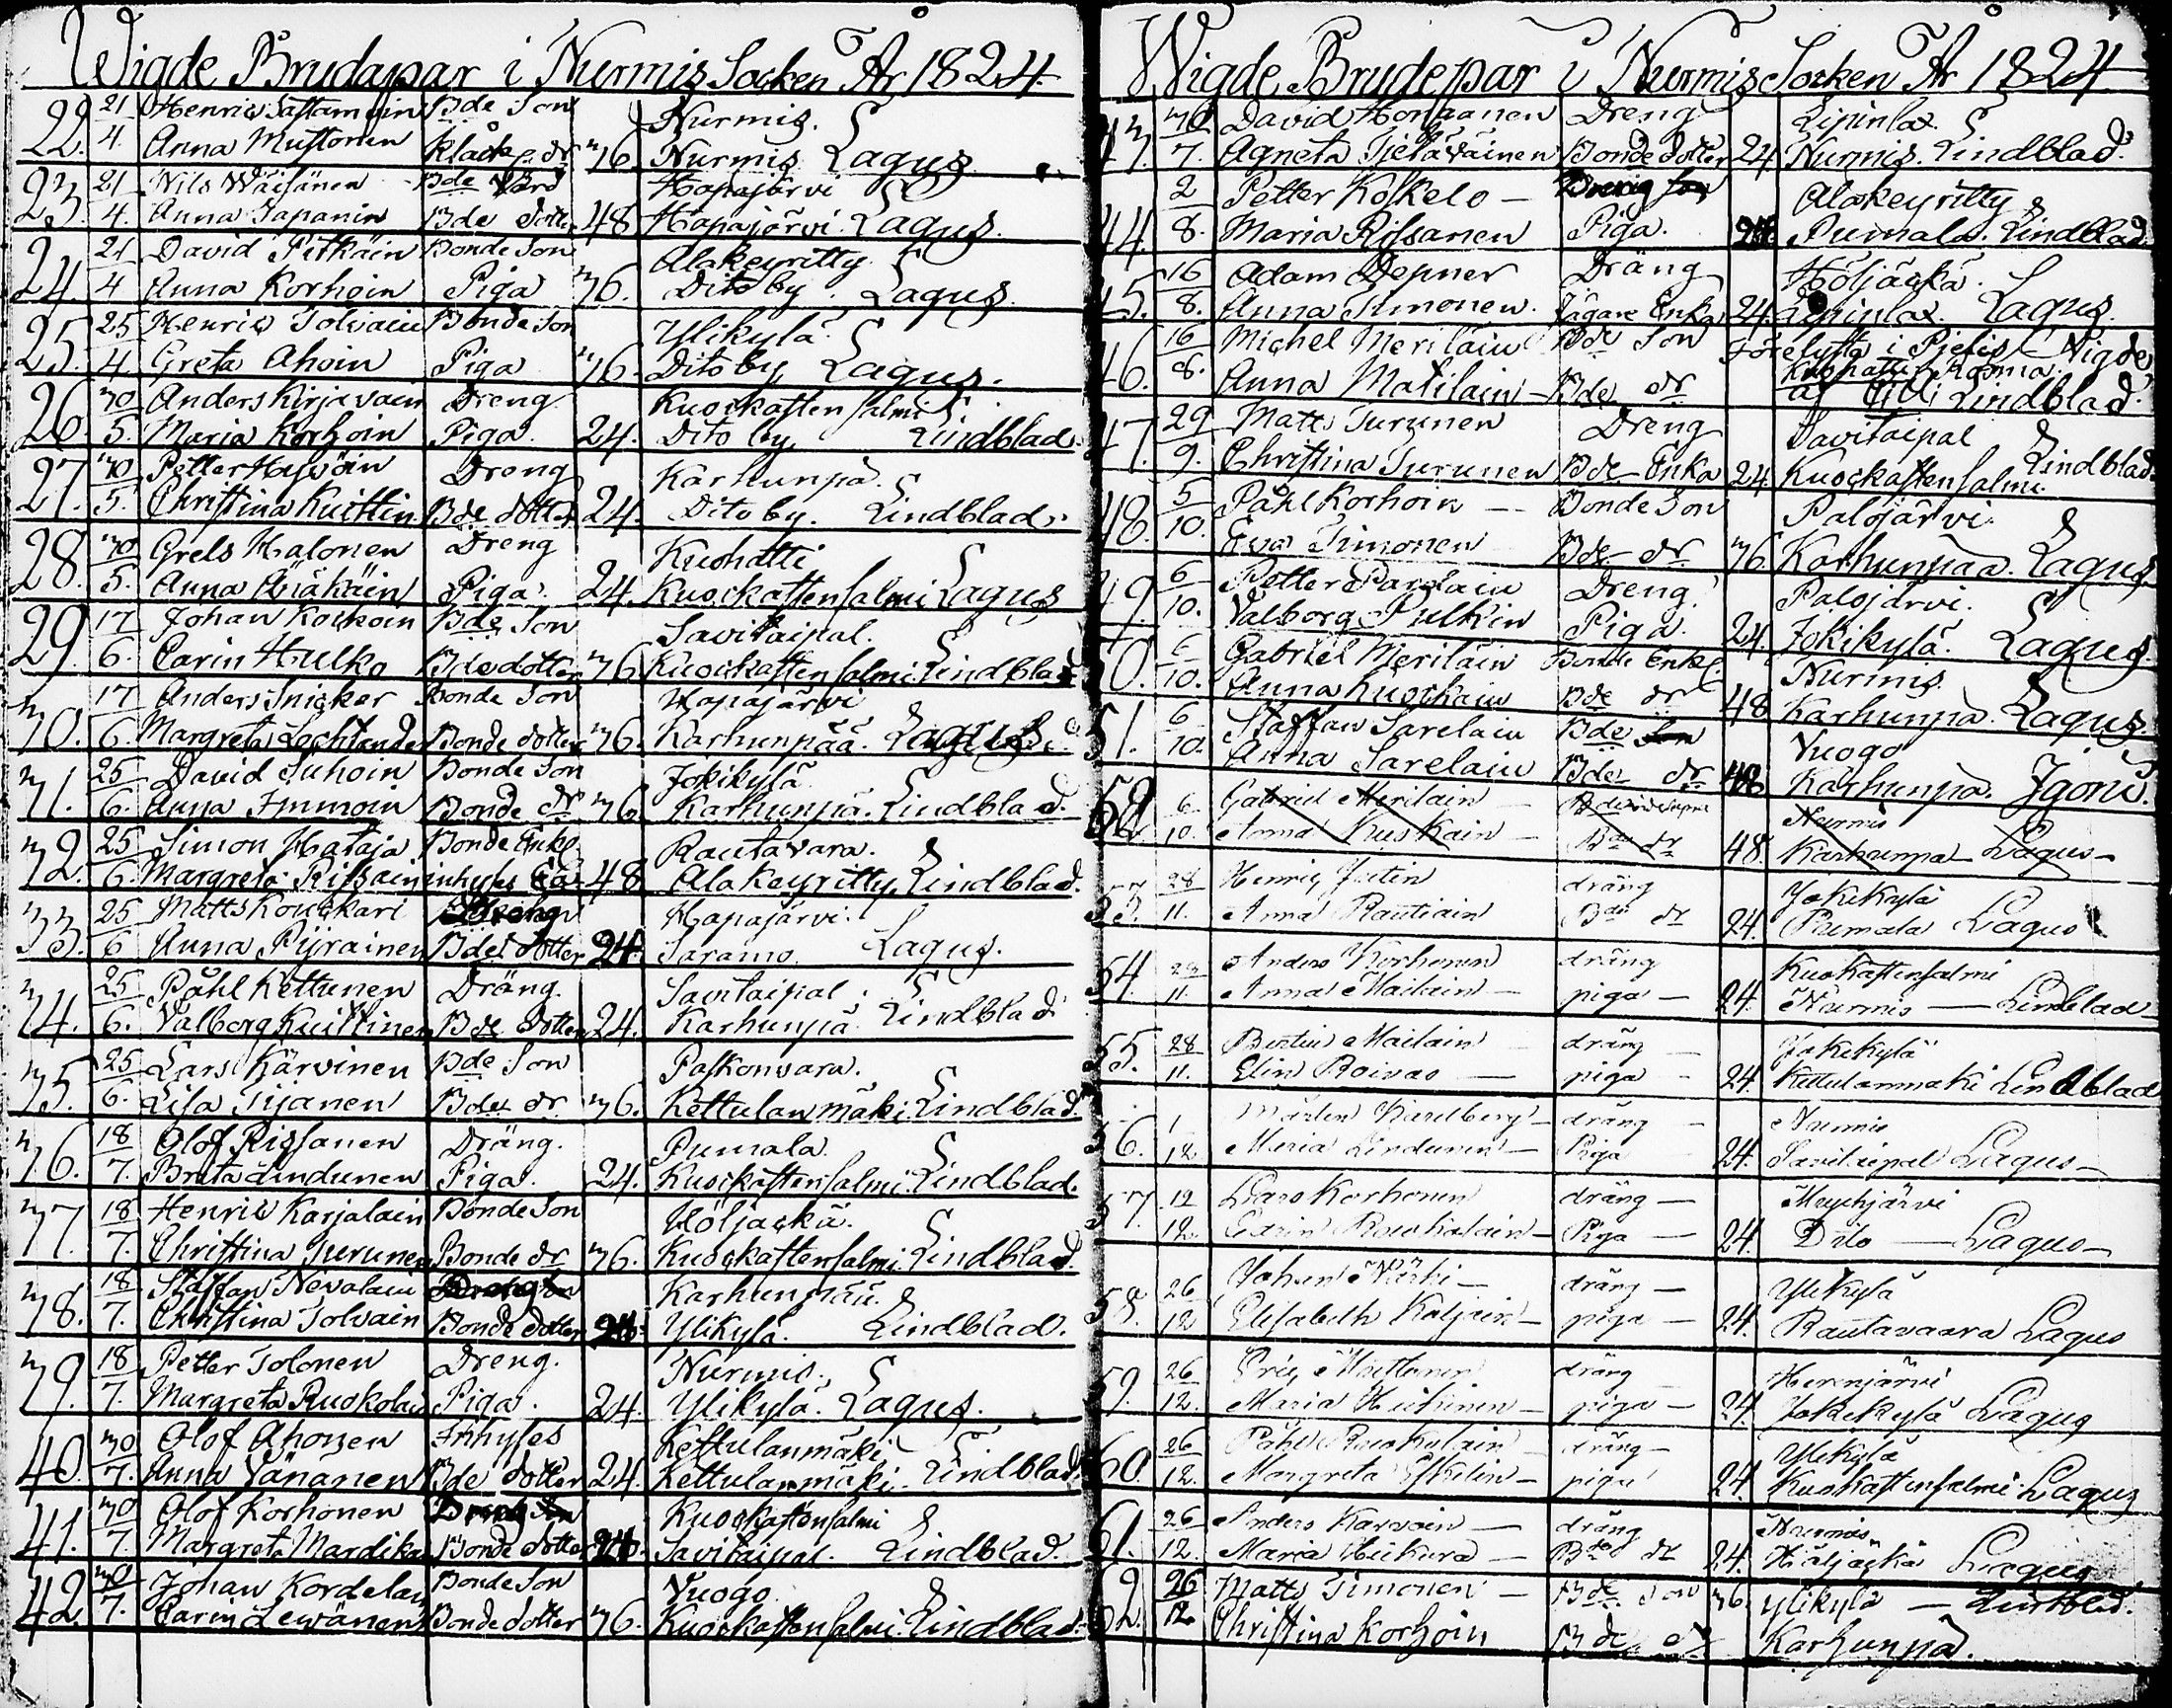 Wigde Brudapar i Nurmis Socken År 1824.
22. 21 Henric Sastamoin Bde Son Nurmis.
4. Anna Mustonen 36. Nurmis Lagus.
23. 21 Nils Wäisänen Bde Hapajärvi
4. Anna Tapanin Bde dotter 48 Hapajärvi. Lagus.
24. 21 David Pitkäin Bonde Son Alakeyritty.
4 Anna Korhoin Piga 36. Dito by. Lagus.
25. 25 Henric Tolvain Bonde Son Ylikylä.
4. Greta Ahoin Piga 36. Dito by, Lagus.
26 30 Anders Kirjavain Dreng. Kuockastensalmi
5. Maria Korhoin Piga. 24. Dito by, Lindblad.
27. 30 Petter Hyvöin Dreng Karhunpä.
5. Christina Kuittin Bde dotter 24. Dito by. Lindblad.
28. 30 Grels Halonen Dreng Kuohatti
5. Anna Piga. 24. Kuockastensalmi Lagus
29. 17 Johan Kockoin Bde Son Savitaipal.
6. Carin Hulko Bde dotter 36 Kuockastensalmi. Lindblad
30. 17 Anders Snicker Bonde Son Hapajärvi
6. Margreta Bonde dotter 36. Karhunpää. Lagus.
31. 25 David Juhoin Bonde Son Jokikylä
6. Anna Immoin Bonde dr 36 Karhunpä. Lindblad.
32. 25 Simon Hataja Bonde Enkl. Rautavara.
6. Margreta Rissain inhyses 48 Alakeyritty. Lindblad.
33. 25 Matts Kouckari Hapajärvi.
6 Anna Pijrainen Bde dotter 24. Saramo. Lagus.
34. 25 Påhl Kettunen Dräng. Savitaipal.
6. Valborg Kuittinen Bde Dotter 24. Karhunpä. Lindblad
35. 25 Lars Kärvinen Bde Son Palkonvara.
6. Lisa Tijanen Bde dr. 36. Kettulanmäki. Lindblad.
36. 18 Olof Rissanen Dräng. Pumala.
7. Brita Lindunen Piga. 24. Kuockastensalmi. Lindblad.
37 18 Henric Karjalain Bonde Son Höljäckä.
7. Christina Turunen Bonde dr 36. Kuockastensalmi. Lindblad.
38. 18 Staffan Nevalain Karhunpää.
7. Christina Tolvain Bonde dotter 24. Ylikylä. Lindblad.
39. 18 Petter Tolonen Dreng. Nurmis.
7. Margreta Ruokolain Piga. 24. Ylikylä. Lagus.
40. 30 Olof Ahonen Inhyses Kettulanmäki
7. Anna Vänänen Bde dotter 24. Kettulanmäki. Lindblad.
41. 30 Olof Korhonen Kuockastensalmi
7. Margreta Mardikai Bonde dotter Savitaipal. Lindblad.
42. 30 Johan Kordelain Bonde Son Vuogo
7. Carin Lewänen Bonde dotter 36. Kuockastensalmi. Lindblad.
Wigde Brudepar i Nurmis Socken År 1824.
43. 30 David Honganen Dreng Lipinlax.
7. Agneta Tjeläväinen Bonde dotter 24. Nurmis. Lindblad.
44. 2 Petter Koskelo Alakeyritty
8. Maria Rissanen Piga. Pumala. Lindblad.
45. 16 Adam Depner Dräng Höljäckä.
8. Anna Timonen. Jägare Enka 24. Lipinlax. Lagus.
46. 16 Michel Meriläin Bde Son i Pjelis Vigde
8. Anna Matilain Bde dr af Lindblad.
47. 29 Matts Turunen Dreng Savitaipal
9. Christina Turunen Bde Enka 24. Kuockastensalmi. Lindblad.
48. 5 Påhl Korhoin Bonde Son Palojärvi.
10. Eva Timonen Bde dr 36 Karhunpää. Lagus
49. 6 Petter Parelain Dreng. Palojärvi.
10. Valborg Pulkin Piga. 24. Jokikylä. Lagus.
50. 6 Gabriel Meriläin Bonde Enkl. Nurmis.
10. Anna Kuockain Bde dr 48 Karhunpä. Lagus.
51. 6 Staffan Sarelain Bde Son Vuogo
10. Anna Sarelain Bde dr 48 Karhunpä. Igonj.
52 6 Gabriel Merilain Nurmis
10. Anna Kuokain Bde dr 48. Karhunpä Lagus
53. 28 Henric Jutin dräng Jokikylä
11. Anna Rautiain Bde dr 24. Pumala Lagus
54. 28 Anders Korhonen dräng Kuokastensalmi
11. Anna Mailain piga 24. Nurmis Lindblad
55. 28 Bertil Mailain dräng Jokikylä
11. Elin Roivas piga 24. Kettulanmäki Lindblad
56. 1 Mårten Karelberg dräng Nurmis
12 Maria Lindunen Piga 24. Savitaipal Lagus
57. 12 Lars Korhonen dräng Mujehjärvi
12. Carin Ruokolain Piga 24. Dito Lagus
58. 26 Johan Närhi dräng Ylikylä
12 Elisabeth Kaljain piga 24. Rautavaara Lagus
59. 26 Eric Maittonen dräng Hernjärvi
12. Maria Heikinen piga 24. Jokikylä Lagus
60. 26 Påhl Ruokolain dräng Ylikylä
12. Margreta Eskelin piga 24. Kuokastensalmi Lagus
61. 26 Anders Karvain dräng Nurmis
12. Maria Heikura Bde dr 24. Häljäckä Lagus
62. 26 Matts Timonen Bde Son 36. Ylikylä Lindblad.
12 Christina Korhoin Bde dr Karhunpä.